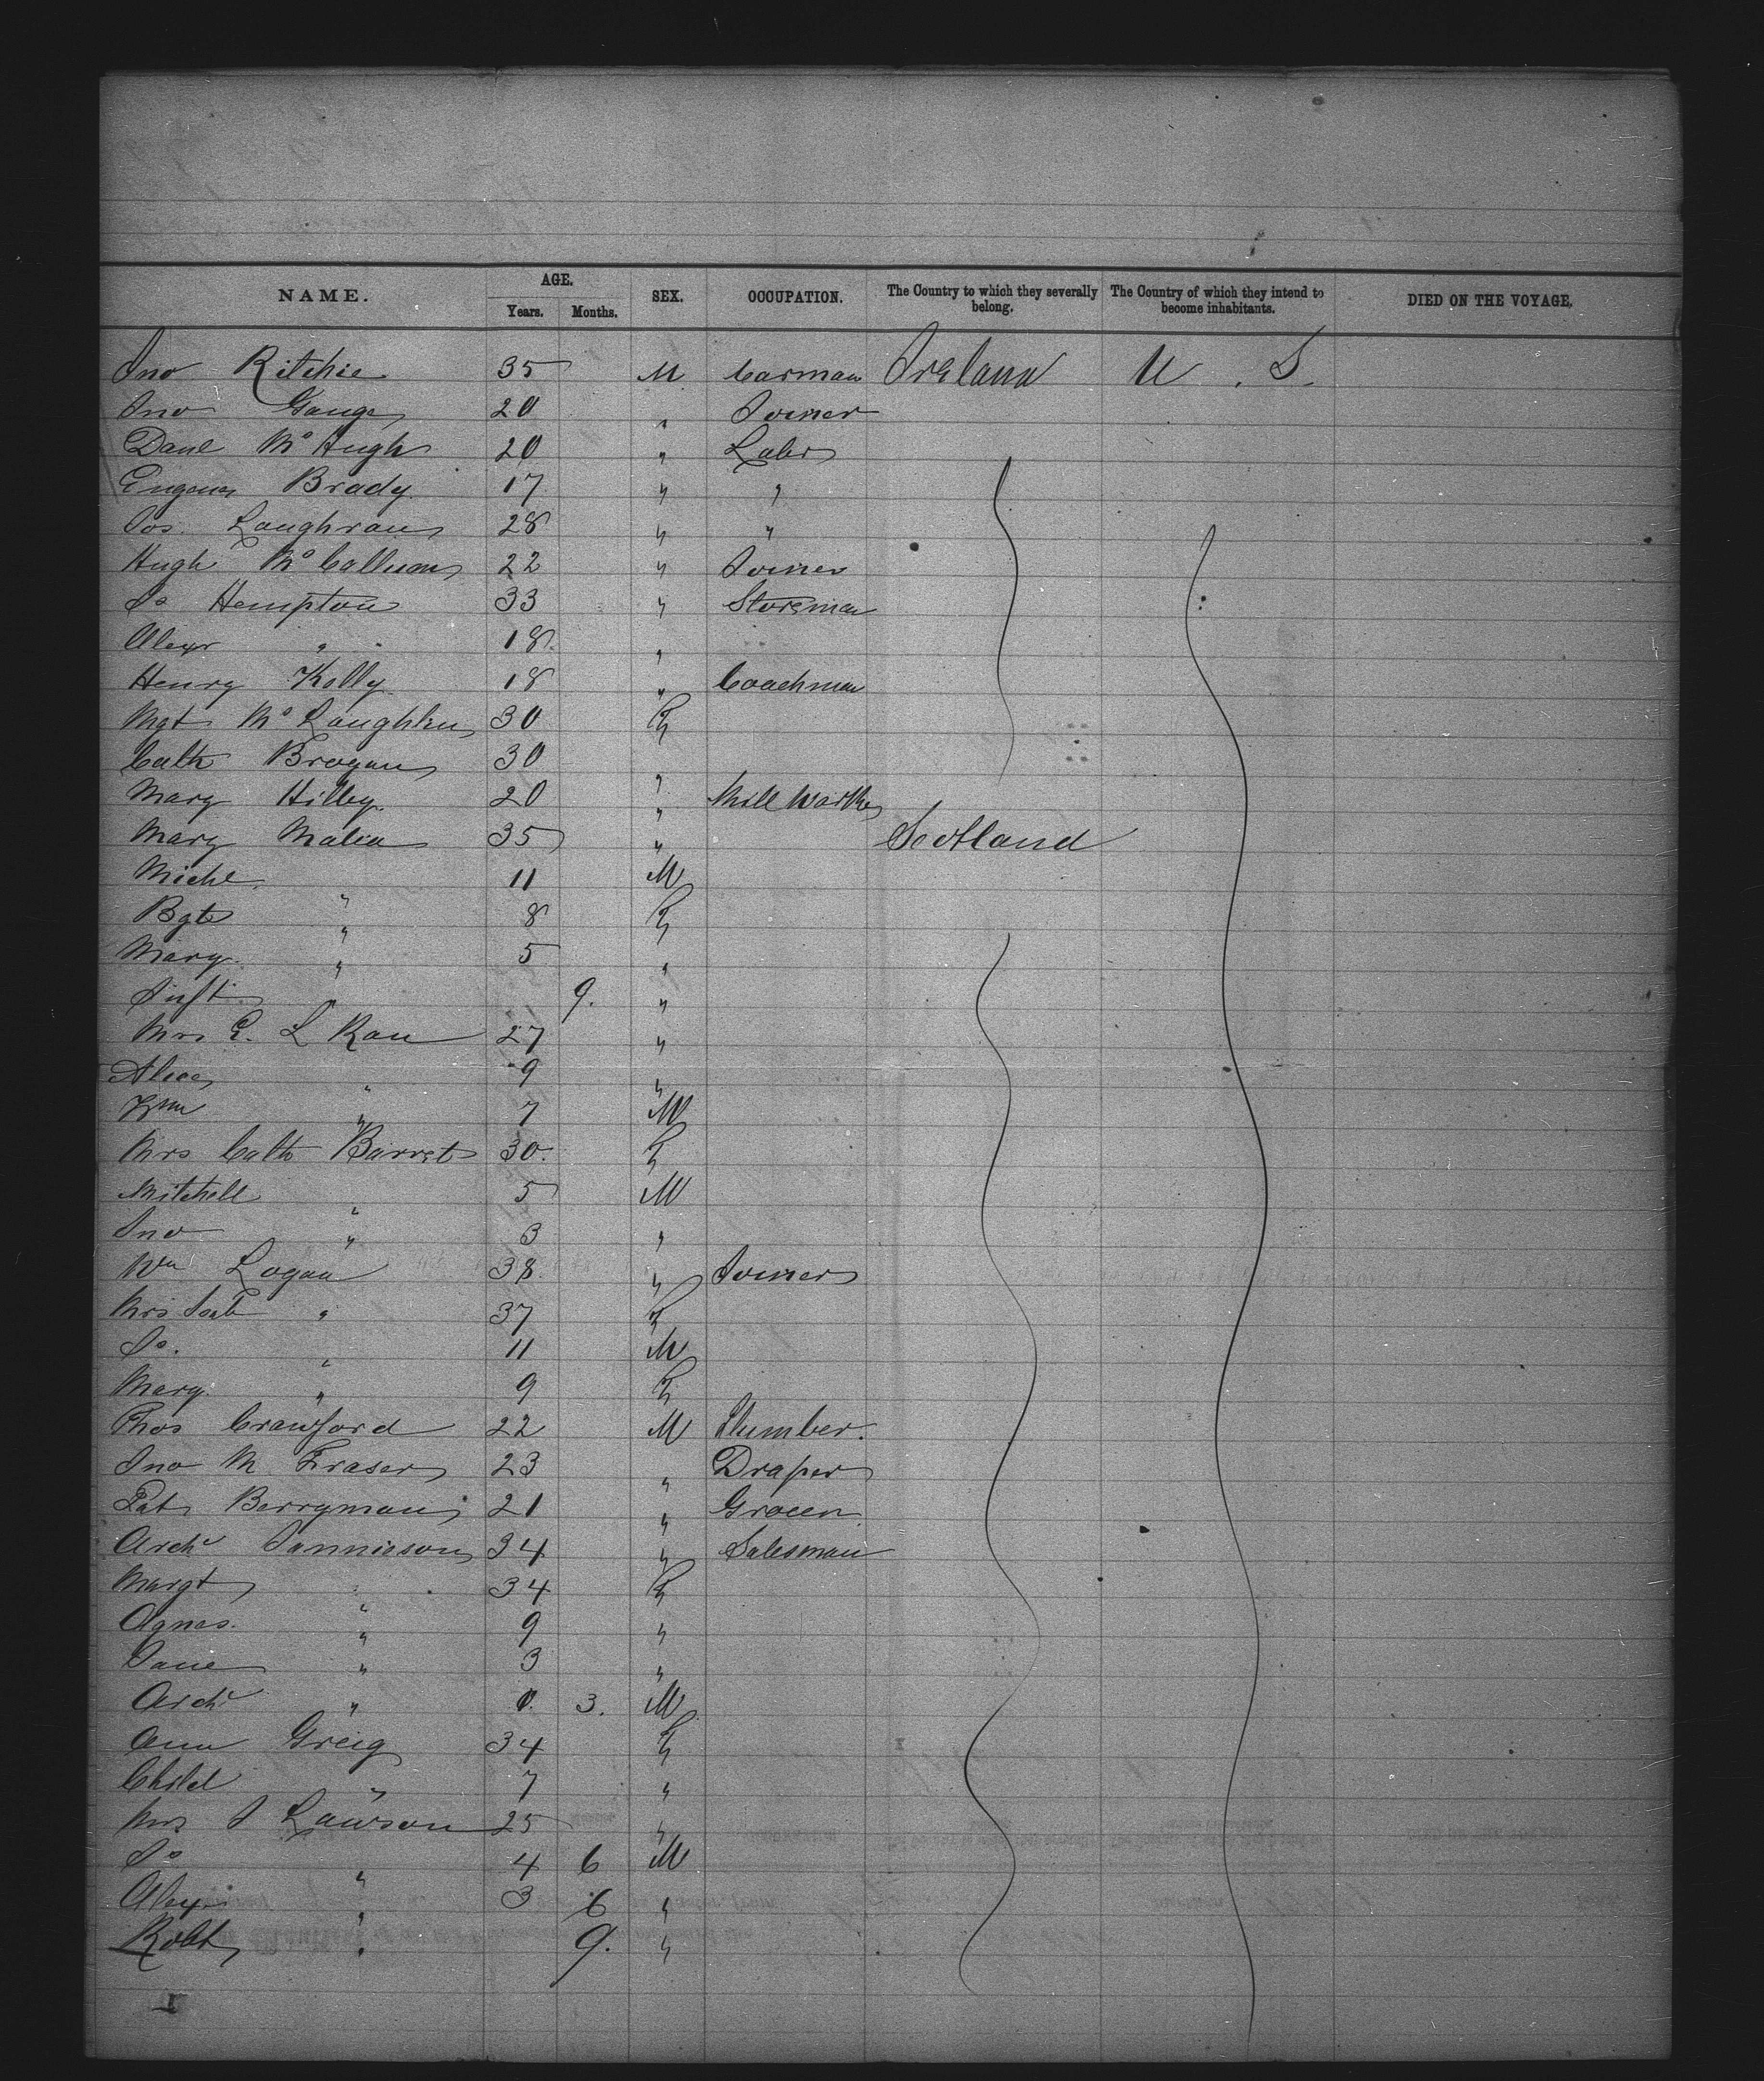 NAME. AGE. SEX. OCCUPATION. The Country to which they severally belong. The Country of which they intend to become inhabitants. DIED ON THE VOYAGE.
Years. Months.
Jno Ritchie 35 M. Carman Ireland U. S.
Jno 20 " Joiner
Danl McHugh 20 " Labr
Brady 17 " "
Jos. Loughran 28 " "
Hugh McCallum 22 " Joiner
Js Hempton 33 " Storeman
Alexr " 18 "
Henry Kelly 18 " Coachman
Mgt McLaughlin 30 F
Cath Brogan 30 "
Mary Hilley 20 " Mill Worker
Mary Malia 35 " Scotland
Michl " 11 M
Bgt " 8 F
Mary " 5 "
Inft " 9. "
Mrs E. L Rau 27 "
Alice " 9 "
Wm " 7 M
Mrs Cath Barret 30. F
Mitchell " 5 M
Jno " 3 "
Wm Logan 38 " Joiner
Mrs " 37 F
Js. " 11 M
Mary " 9 F
Thos Crawford 22 M Plumber.
Jno M Fraser 23 " Draper
Pat Berryman 21 " Grocer
Archd Jannieson 34 " Salesman
Margt " 34 F
Agnes. " 9 "
Jane " 3 "
Archd " 0. 3. M
Ann Greig 34 F
Child " 7 "
Mrs J Lawson 25 "
Js " 4 6 M
Alexr " 3 6 "
Robt " 9. "